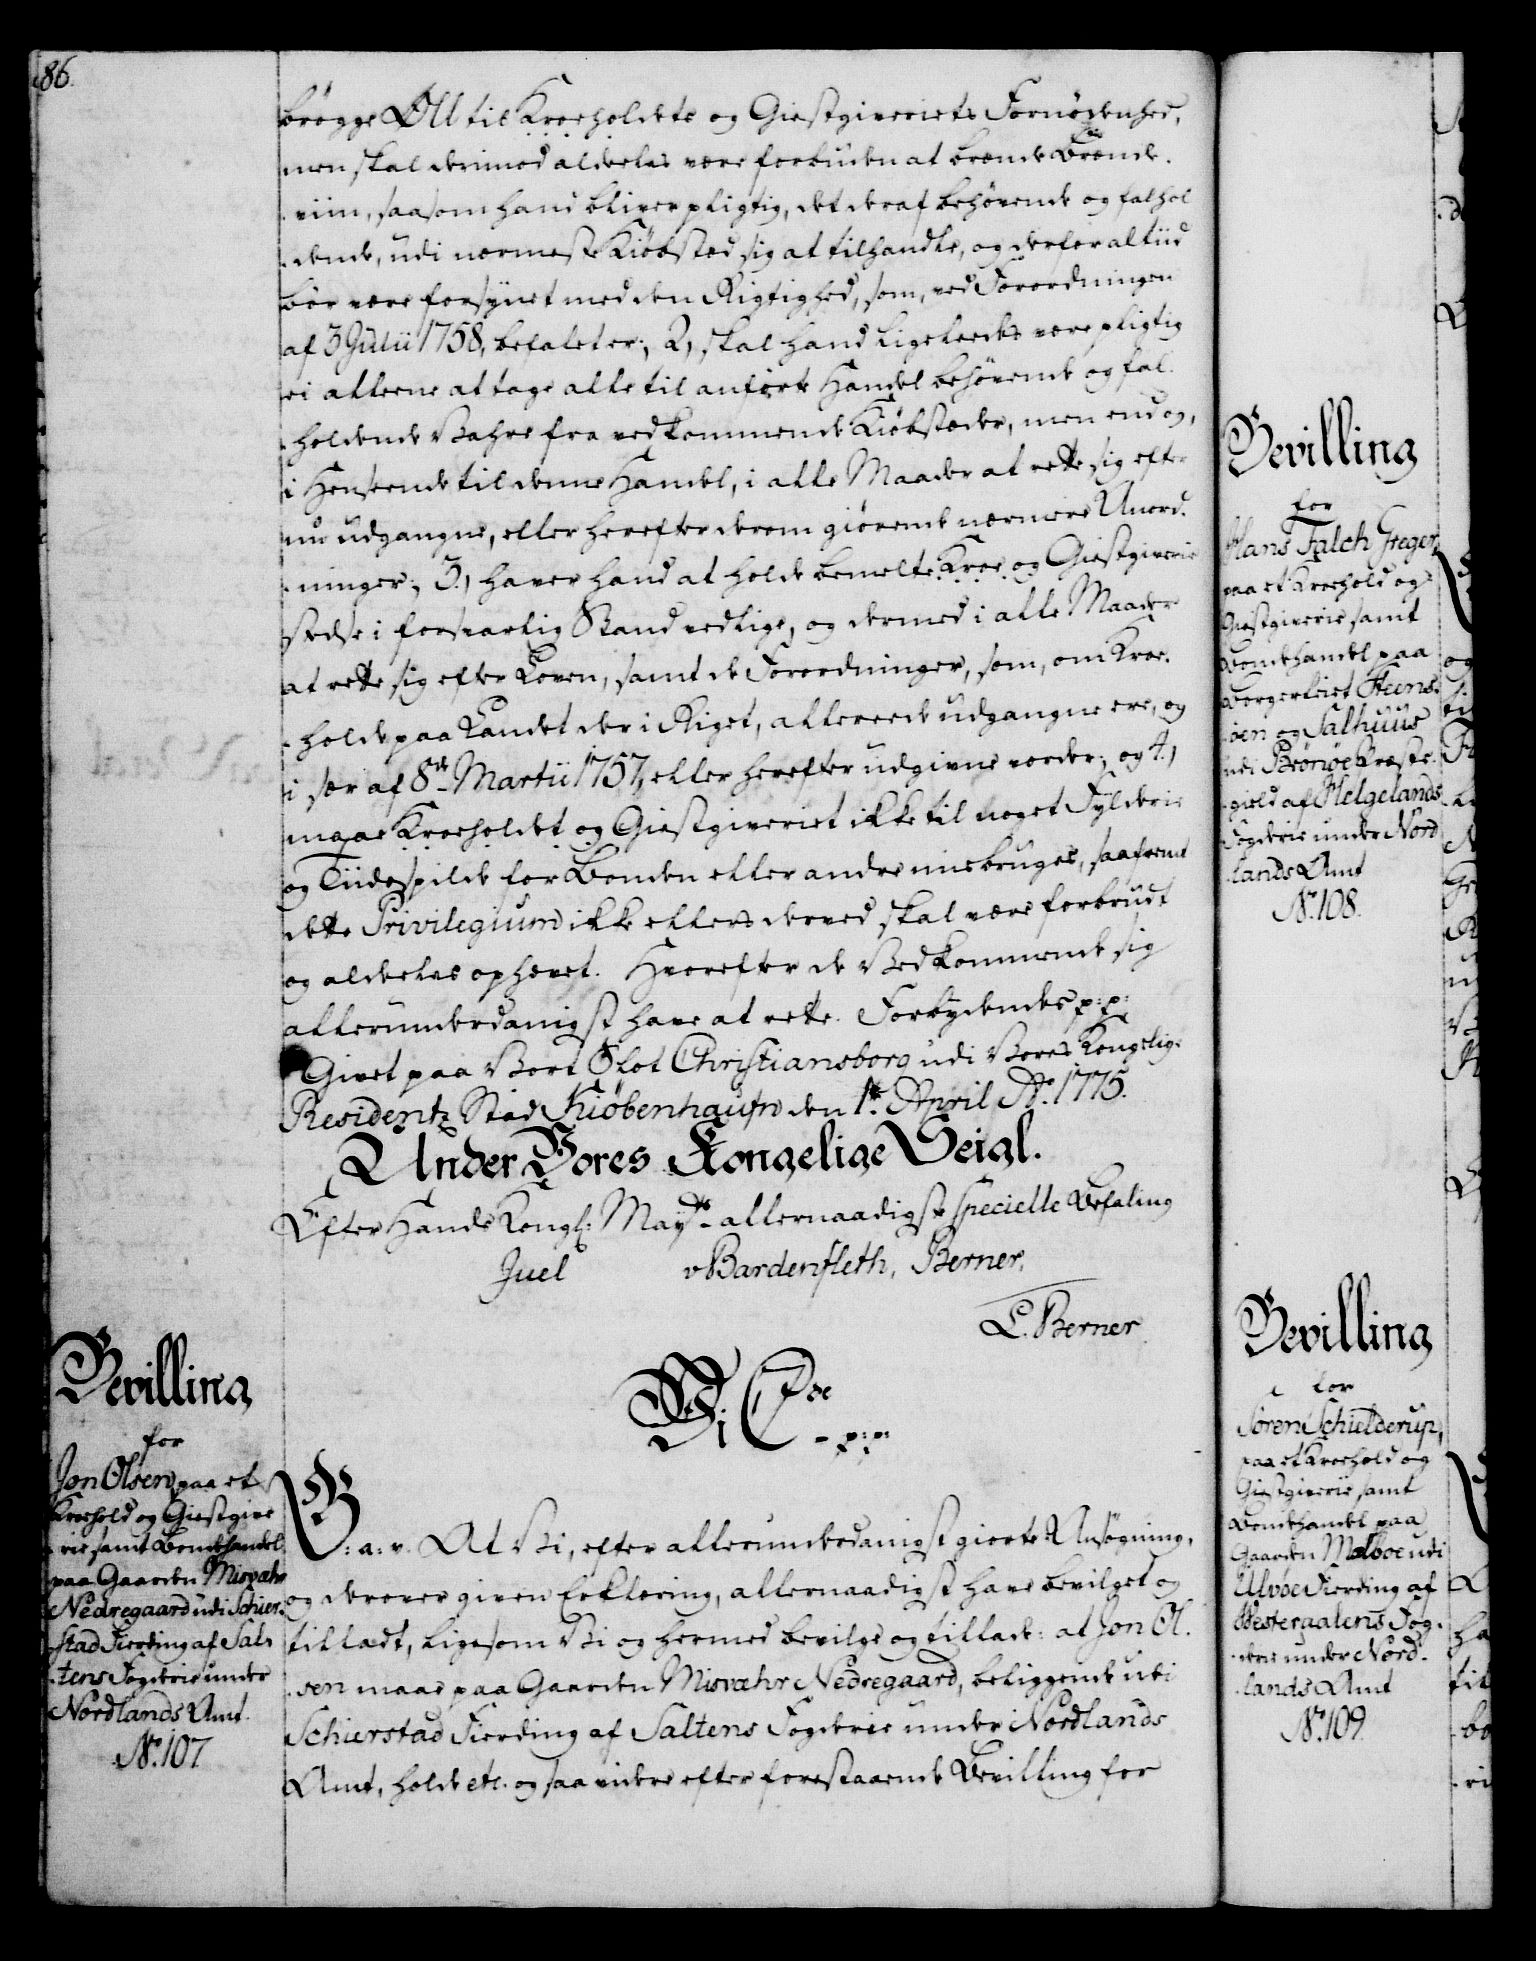 86.
brögge Øll til Kroeholdets og Giestgiveriets Fornödenhed,
men skal derimod aldeeles være forbuden at brænde Brænde-
-viin, saasom hand bliver pligtig, det deraf behövende og falhol-
-dende, udi nærmeste Kiöbstæd sig at tilhandle, og derfor altiid
bör være forsynet med den Rigtighed, som, ved Forordningen
af 3 Julii 1758, befalet er; 2, skal hand ligeleedes være pligtig
ei alleene at tage alle til anförte Handel behövende og fal-
-holdende Vahre fra vedkommende Kiöbstæder, men end og,
i Henseende til denne Handel, i alle Maader at rette sig efter
nu udgangne, eller herefter derom giörende nærmere Anord-
-ninger; 3,) haver hand at holde bemelte Kroe og Giestgiverie
stedse i forsvarlig Stand vedlige, og dermed i alle Maader
at rette sig efter Loven, samt de Forordninger, som, om Kroe-
-holde paa Landet der i Riget, allereede udgangne ere, og
i sær af 8de Martii 1757, eller herefter udgivne vorder; og 4,)
maae Kroeholdet og Giestgiveriet ikke til noget Fylderie
og Tiidespilde for Bonden eller andre misbruges, saafremt
dette Privilegium ikke ellers derved skal være forbrudt
og aldeeles ophævet. Hvorefter de Vedkommende sig
allerunderdanigst have at rette. Forbydendes p: p:
Givet paa Vort Slot Christiansborg udi Vores Kongelig-
Residentz Stad Kiöbenhaufn den 1te April Ao. 1775.
Under Vores Kongelige Seigl.
Efter Hands Kongl: Mayts allernaadigste specielle Befaling
Juel v Bardenfleth, Berner,
L. Berner
Bevilling
for
Jon Olsen paa et
Kroehold og Giestgive-
-rie samt Bondehandel
paa Gaarden Misvæhr
Nedregaard udi Schier-
-stad Fierding af Sal-
-tens Fogderie under
Nordlands Amt.
No. 107
Vi C 7de
- p: p:
G: a: v. At Vi, efter allerunderdanigst giorte Ansögning,
og derover given Erklæring, allernaadigst have bevilget og
tilladt, ligesom Vi og hermed bevilge og tillade: at Jon Ol-
-sen maae paa Gaarden Misvæhr Nedregaard, beliggende udi
Schierstad Fierding af Saltens Fogderie under Nordlands
Amt, holde etc. og saa videre efter forestaaende Bevilling for
Bevilling
for
Hans Falch Greger,
paa et Kroehold og
Giestgiverie samt
Bondehandel paa
Borgerleiet Steens-
-öen og Salhuus
udi Brönöe Præste-
-gield af Helgelands
Fogderie under Nord-
-lands Amt
No. 108.
Bevilling
for
Sören Schielderup,
paa et Kroehold og
Giestgiverie samt
Bondehandel paa
Gaarden Melboe udi
Ulvöe Fierding af
Westeraalens Fog-
-derie under Nord-
-lands Amt
No. 109.